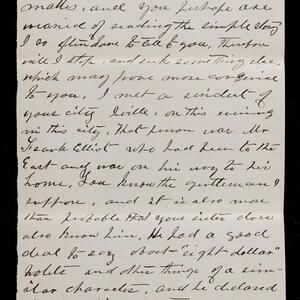 makes, and you perhaps are
wearied of reading the simple story
I so often have to tell to you, therefore
will I stop, and seek something else,
which may prove more congenial
to you. I met a resident of
your city, Iville, on this evening
in this city. That person was Mr
Frank Elliot who had been to the
East and was on his way to his
home, You know the gentleman I
suppose, and it is also more
than probable that your sister does
also know him. He had a good
deal to say about "eight dollar"
hotels and other things of a sim-
ilar character, and he declared